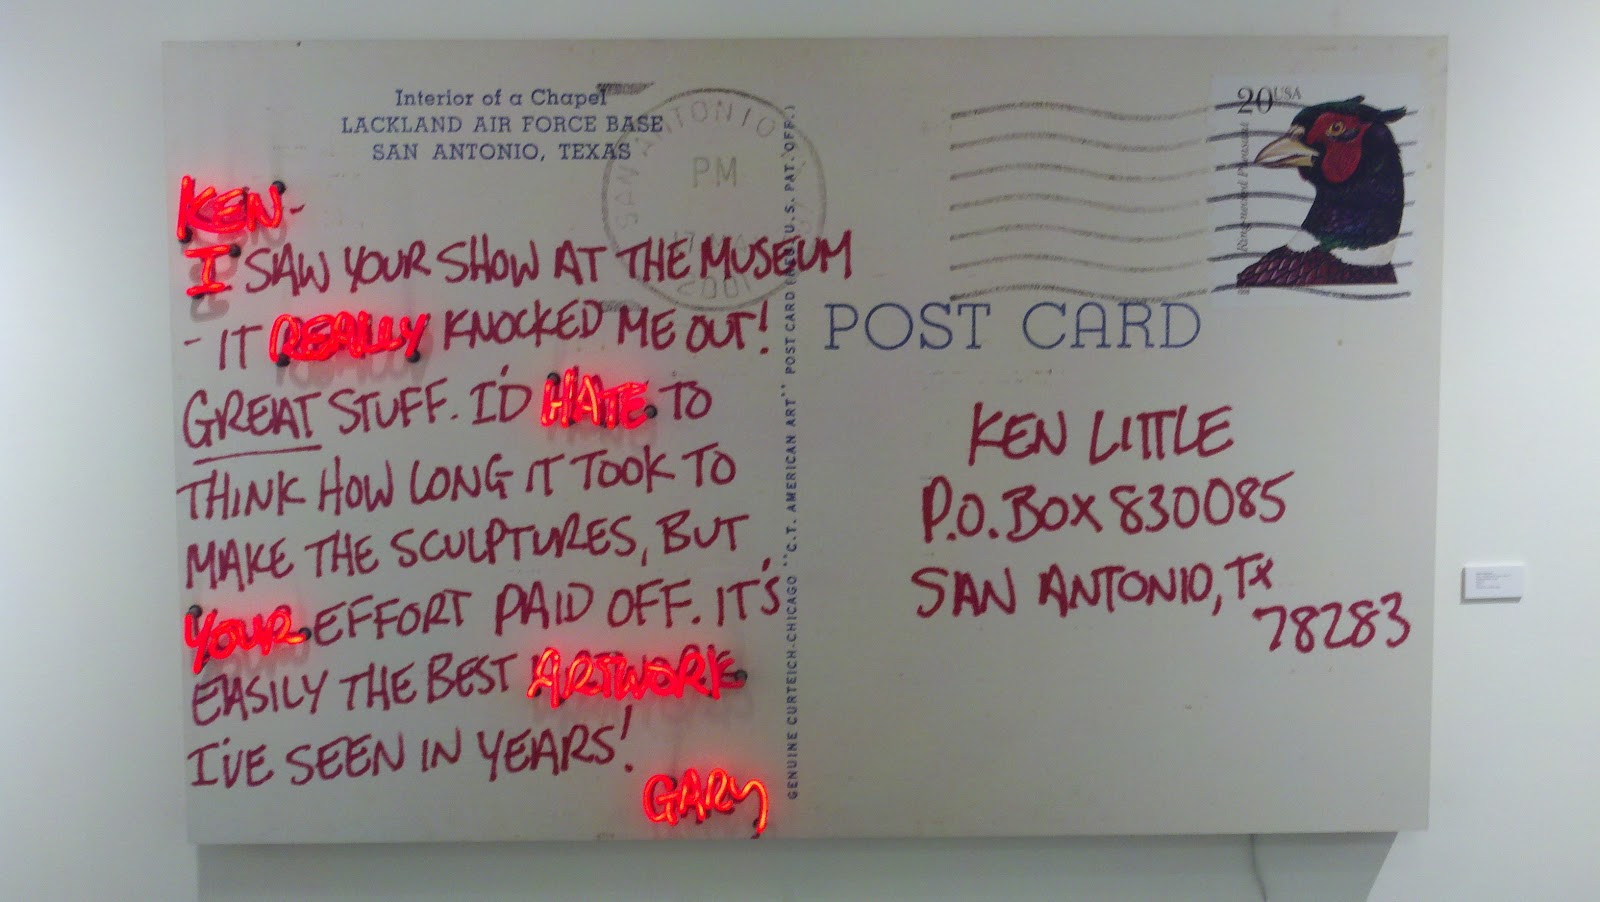 Interior of a Chapel
LACKLAND AIR FORCE BASE
SAN ANTONIO, TEXAS
KEN-
I SAW YOUR SHOW AT THE MUSEUM
- IT REALLY KNOCKED ME OUT!
GREAT STUFF. I'D HATE TO
THINK HOW LONG IT TOOK TO
MAKE THE SCULPTURES, BUT
YOUR EFFORT PAID OFF. IT'S
EASILY THE BEST ARTWORK
I'VE SEEN IN YEARS!
GARY
SAN ANTONIO
PM
2001
GENUINE CURTEICH-CHICAGO "C.T. AMERICAN ART" POST CARD (REG. U.S. PAT. OFF.)
20 USA
Ring-necked Pheasant
POST CARD
KEN LITTLE
P.O. BOX 830085
SAN ANTONIO, TX
78283